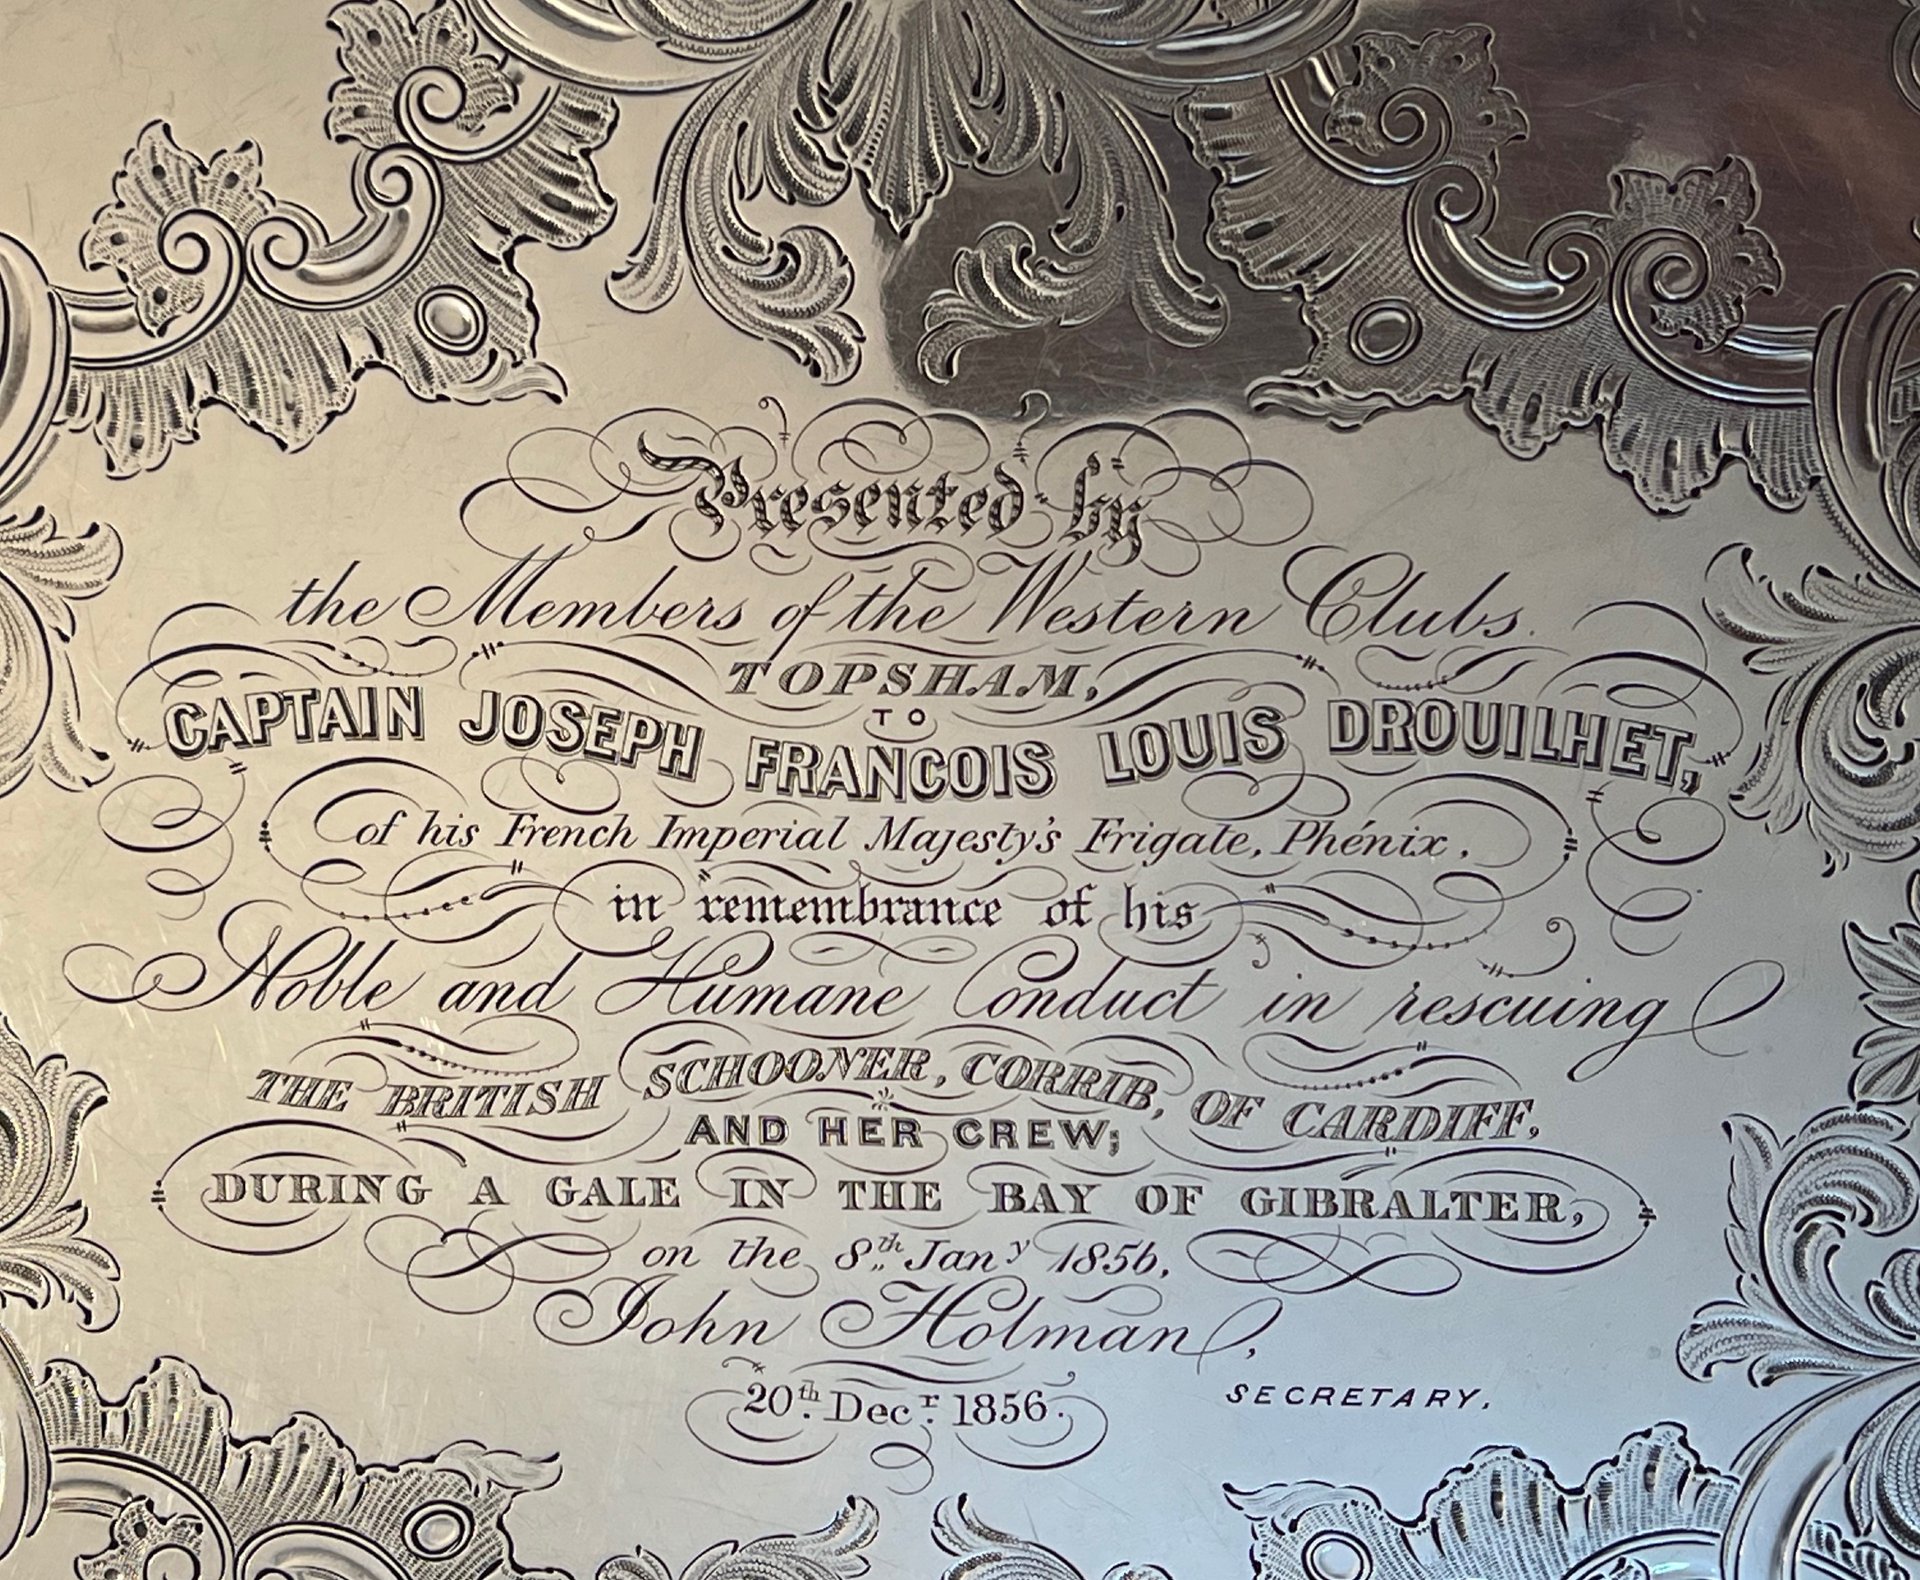 Presented by
the Members of the Western Clubs.
TOPSHAM,
TO
CAPTAIN JOSEPH FRANCOIS LOUIS DROUILHET,
of his French Imperial Majesty's Frigate, Phénix,
in remembrance of his
Noble and Humane Conduct in rescuing
THE BRITISH SCHOONER, CORRIB, OF CARDIFF,
AND HER CREW;
DURING A GALE IN THE BAY OF GIBRALTER,
on the 8th Jany 1856,
John Holman,
SECRETARY.
20th Decr 1856.